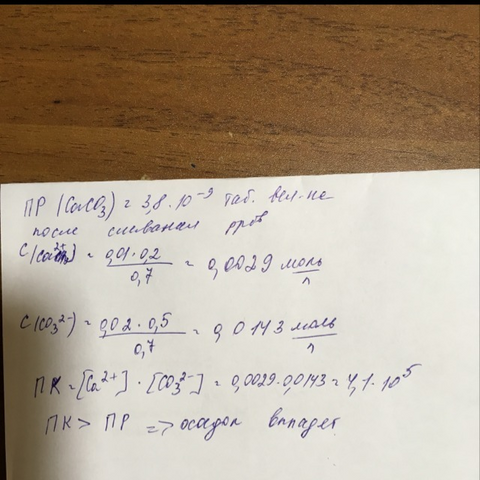 ПР (CaCO3) = 3,8·10⁻⁹ таб. вел-не
после сливания рров
C(Ca²⁺) = 0,01·0,2 / 0,7 = 0,0029 моль/л
C(CO3²⁻) = 0,02·0,5 / 0,7 = 0,0143 моль/л
ПК = [Ca²⁺]·[CO3²⁻] = 0,0029·0,0143 = 4,1·10⁵
ПК > ПР => осадок выпадет